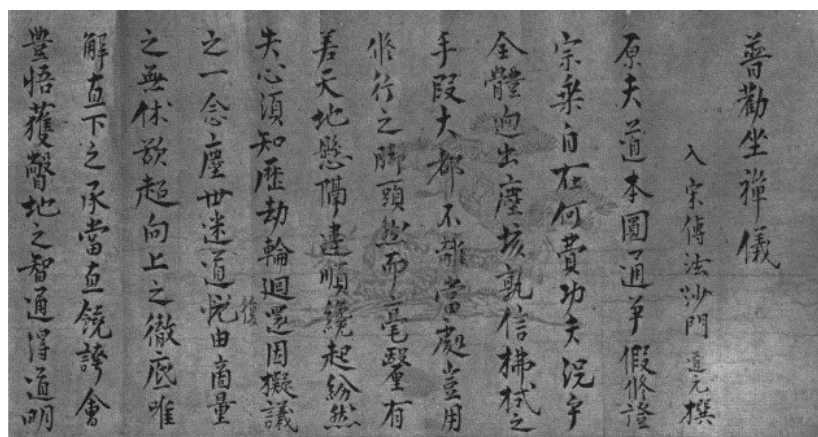 普勸坐禪儀
入宋傳法沙門道元撰
原夫道本圓通爭假修證
宗乘自在何費功夫況乎
全體迥出塵埃孰信拂拭之
手段大都不離當處豈用
修行之脚頭然而毫釐有
差天地懸隔違順纔起紛然
失心須知歷劫輪迴還因擬議
之一念塵世迷道復由商量
之無休欲超向上之徹底唯
解直下之承當直饒誇會
豐悟獲瞥地之智通得道明